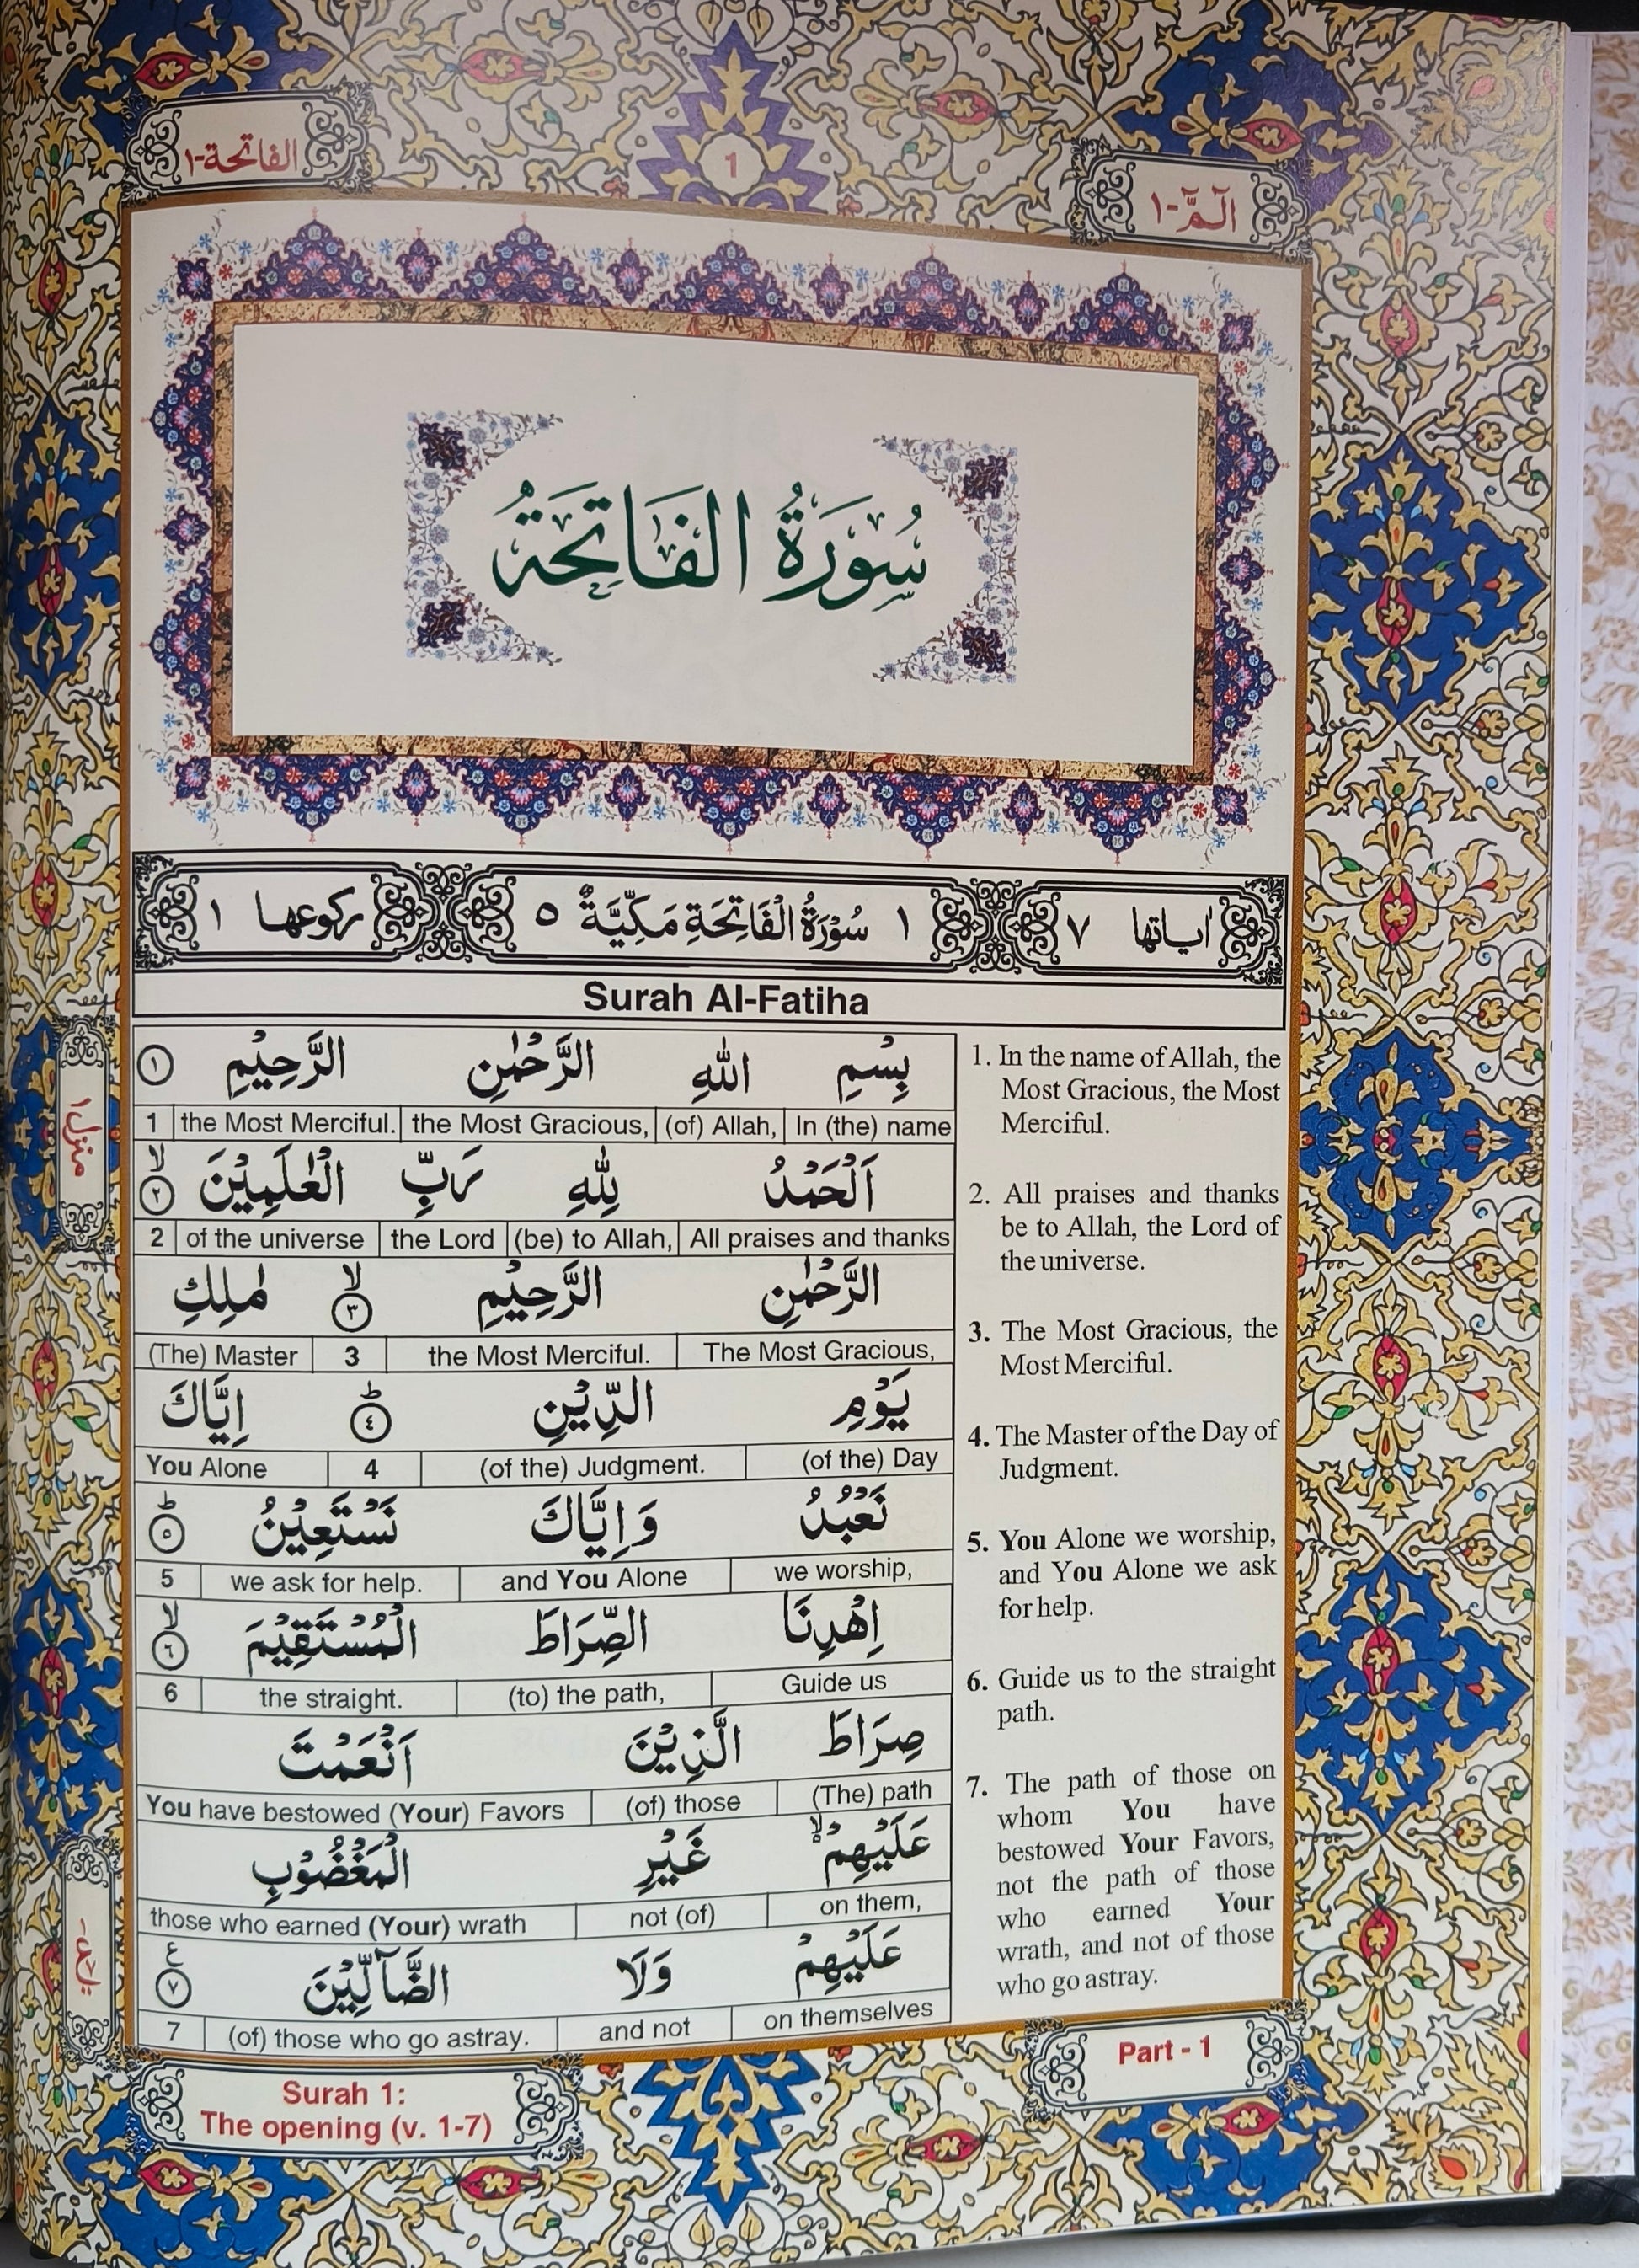 الفاتحة-١
1
الٓمّٓ-١
سُورَةُ الفَاتِحَةُ
اٰیاتها ٧
١ سُوْرَةُ الْفَاتِحَةِ مَكِّيَّةٌ ٥
رکوعها ١
Surah Al-Fatiha
بِسْمِ اللهِ الرَّحْمٰنِ الرَّحِيْمِ ١
1 the Most Merciful. the Most Gracious, (of) Allah, In (the) name
اَلْحَمْدُ لِلّٰهِ رَبِّ الْعٰلَمِيْنَ ۙ ٢
2 of the universe the Lord (be) to Allah, All praises and thanks
الرَّحْمٰنِ الرَّحِيْمِ ۙ ٣ مٰلِكِ
(The) Master 3 the Most Merciful. The Most Gracious,
يَوْمِ الدِّيْنِ ؕ ٤ اِيَّاكَ
You Alone 4 (of the) Judgment. (of the) Day
نَعْبُدُ وَاِيَّاكَ نَسْتَعِيْنُ ؕ ٥
5 we ask for help. and You Alone we worship,
اِهْدِنَا الصِّرَاطَ الْمُسْتَقِيْمَ ۙ ٦
6 the straight. (to) the path, Guide us
صِرَاطَ الَّذِيْنَ اَنْعَمْتَ
You have bestowed (Your) Favors (of) those (The) path
عَلَيْهِمْ ۙ۬ غَيْرِ الْمَغْضُوْبِ
those who earned (Your) wrath not (of) on them,
عَلَيْهِمْ وَلَا الضَّآلِّيْنَ ع ٧
7 (of) those who go astray. and not on themselves
1. In the name of Allah, the
Most Gracious, the Most
Merciful.
2. All praises and thanks
be to Allah, the Lord of
the universe.
3. The Most Gracious, the
Most Merciful.
4. The Master of the Day of
Judgment.
5. You Alone we worship,
and You Alone we ask
for help.
6. Guide us to the straight
path.
7. The path of those on
whom You have
bestowed Your Favors,
not the path of those
who earned Your
wrath, and not of those
who go astray.
منزل ١
Surah 1:
The opening (v. 1-7)
Part - 1